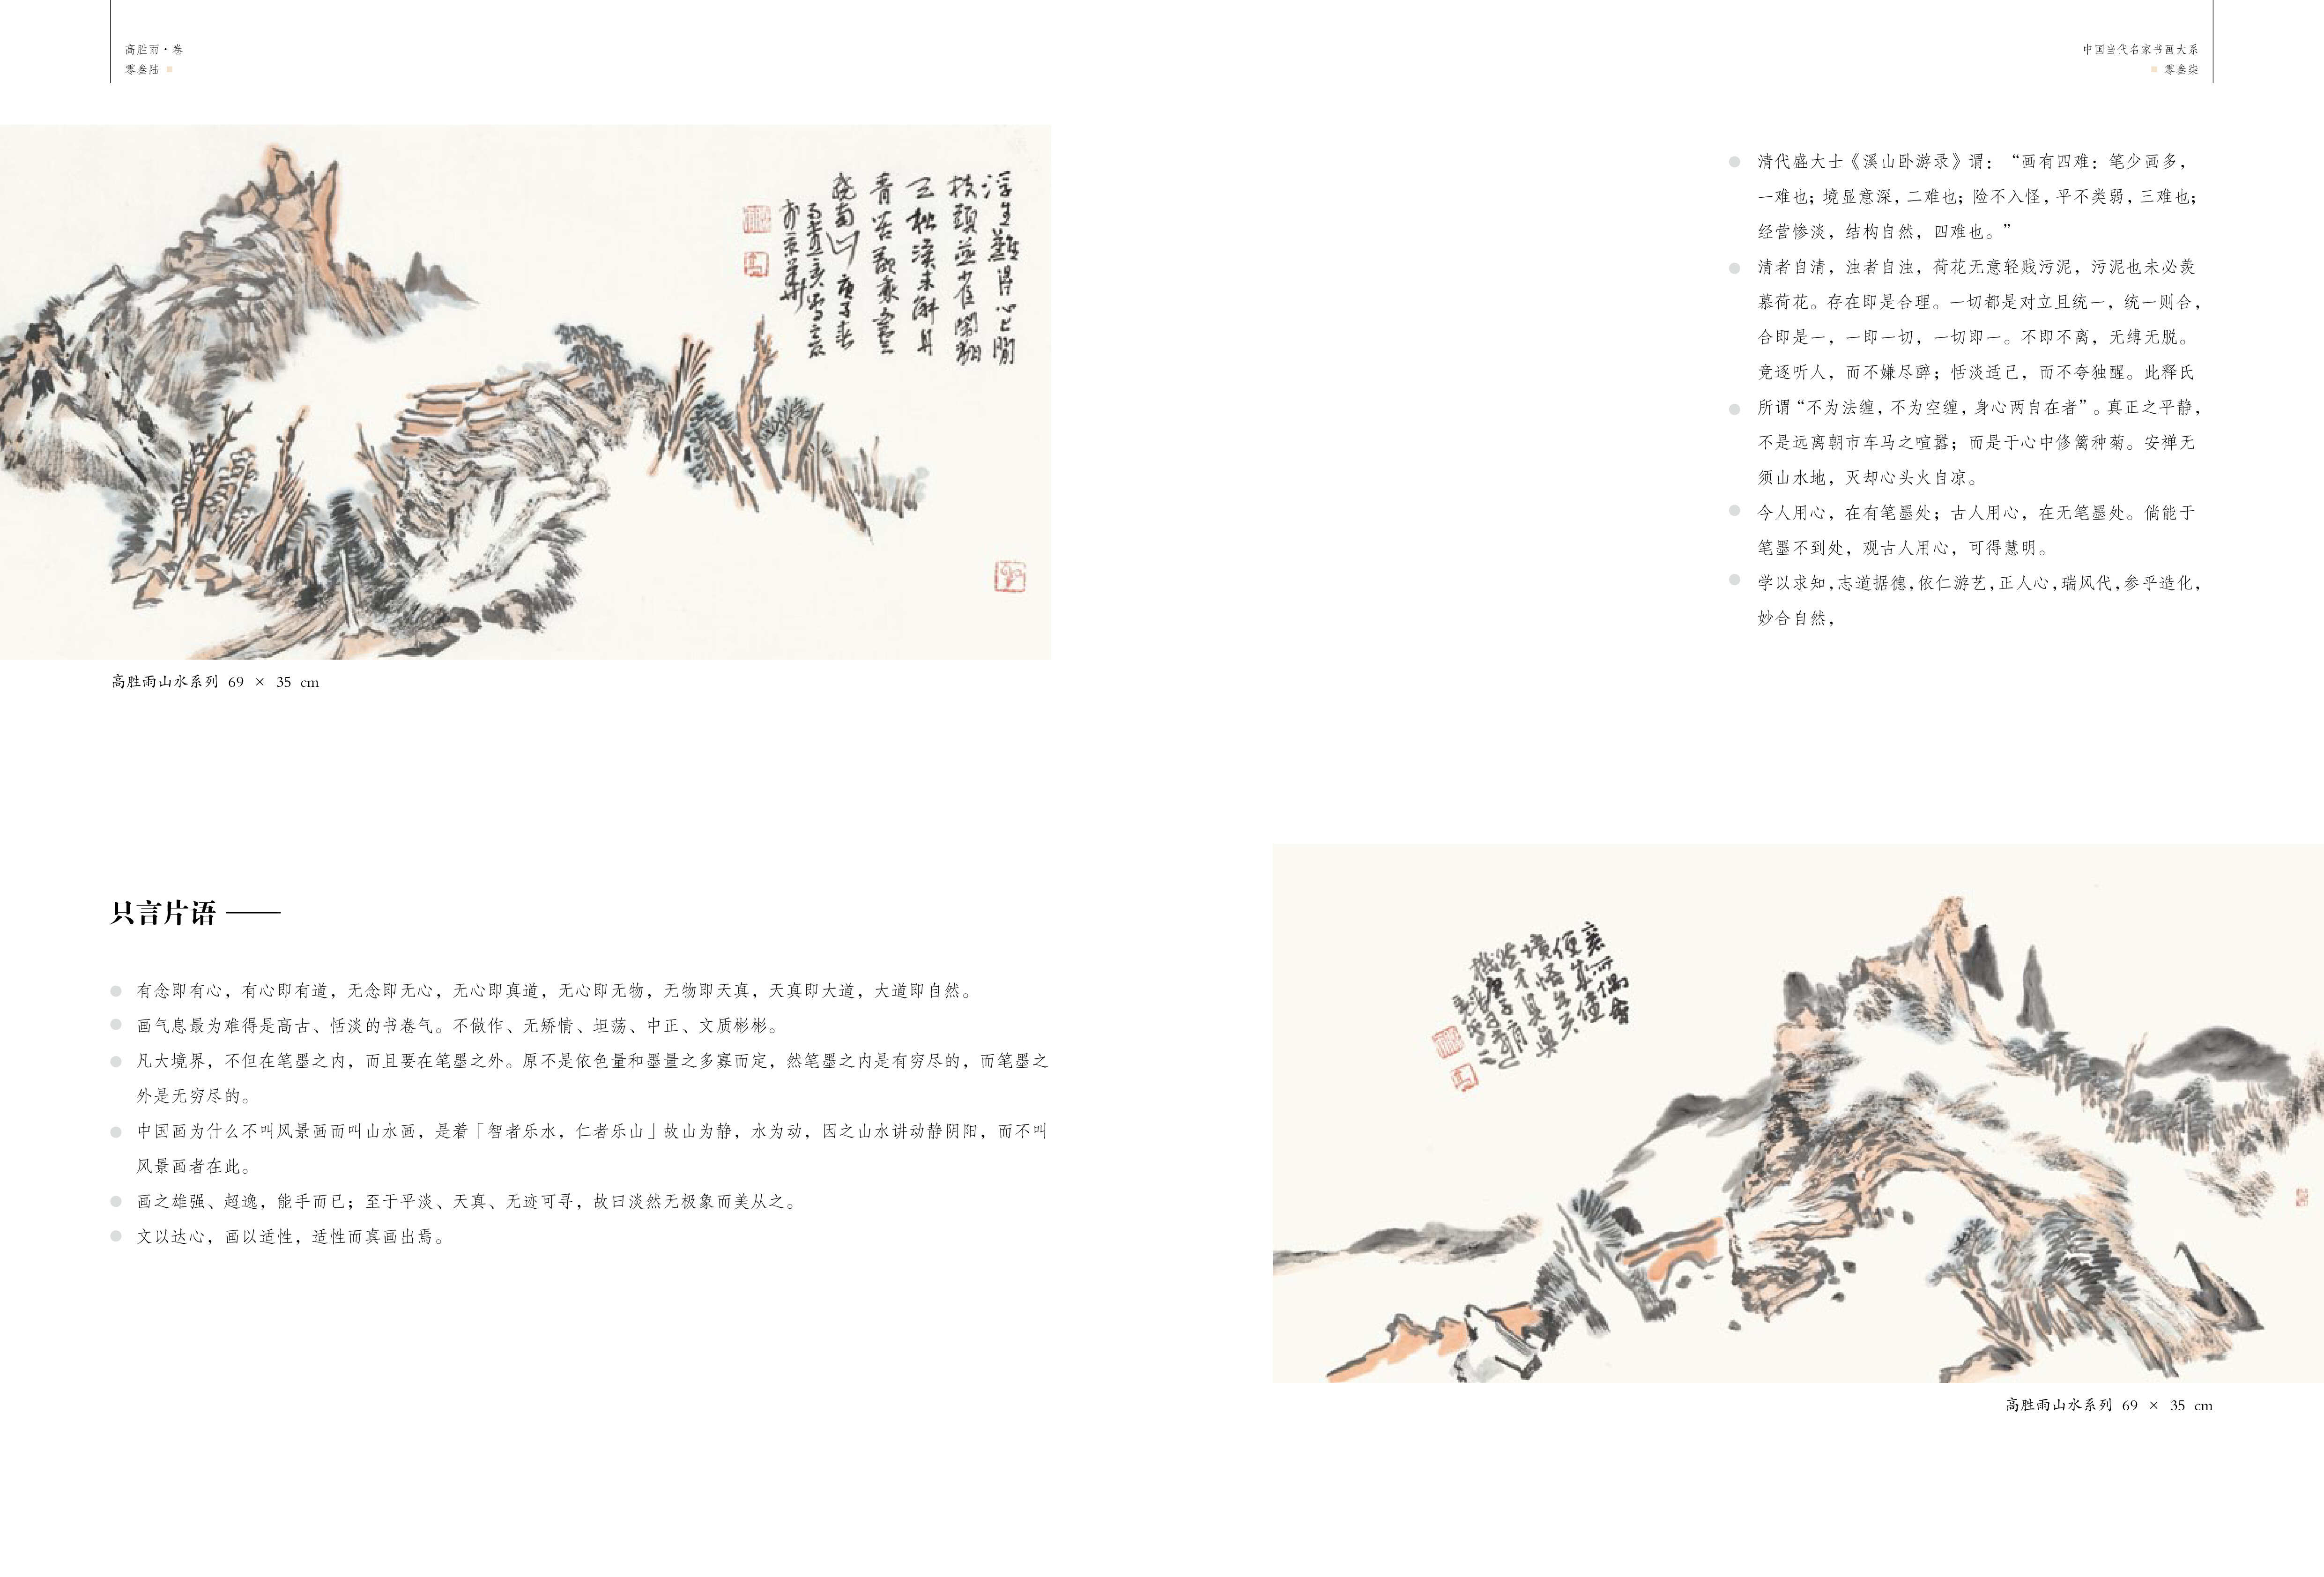 高胜雨·卷
零叁陆
高胜雨山水系列 69 × 35 cm
只言片语——
有念即有心，有心即有道，无念即无心，无心即真道，无心即无物，无物即天真，天真即大道，大道即自然。
画气息最为难得是高古、恬淡的书卷气。不做作、无矫情、坦荡、中正、文质彬彬。
凡大境界，不但在笔墨之内，而且要在笔墨之外。原不是依色量和墨量之多寡而定，然笔墨之内是有穷尽的，而笔墨之
外是无穷尽的。
中国画为什么不叫风景画而叫山水画，是着「智者乐水，仁者乐山」故山为静，水为动，因之山水讲动静阴阳，而不叫
风景画者在此。
画之雄强、超逸，能手而已；至于平淡、天真、无迹可寻，故曰淡然无极象而美从之。
文以达心，画以适性，适性而真画出焉。
中国当代名家书画大系
零叁柒
清代盛大士《溪山卧游录》谓：“画有四难：笔少画多，
一难也；境显意深，二难也；险不入怪，平不类弱，三难也；
经营惨淡，结构自然，四难也。”
清者自清，浊者自浊，荷花无意轻贱污泥，污泥也未必羡
慕荷花。存在即是合理。一切都是对立且统一，统一则合，
合即是一，一即一切，一切即一。不即不离，无缚无脱。
竞逐听人，而不嫌尽醉；恬淡适己，而不夸独醒。此释氏
所谓“不为法缠，不为空缠，身心两自在者”。真正之平静，
不是远离朝市车马之喧嚣；而是于心中修篱种菊。安禅无
须山水地，灭却心头火自凉。
今人用心，在有笔墨处；古人用心，在无笔墨处。倘能于
笔墨不到处，观古人用心，可得慧明。
学以求知，志道据德，依仁游艺，正人心，瑞风代，参乎造化，
妙合自然，
高胜雨山水系列 69 × 35 cm